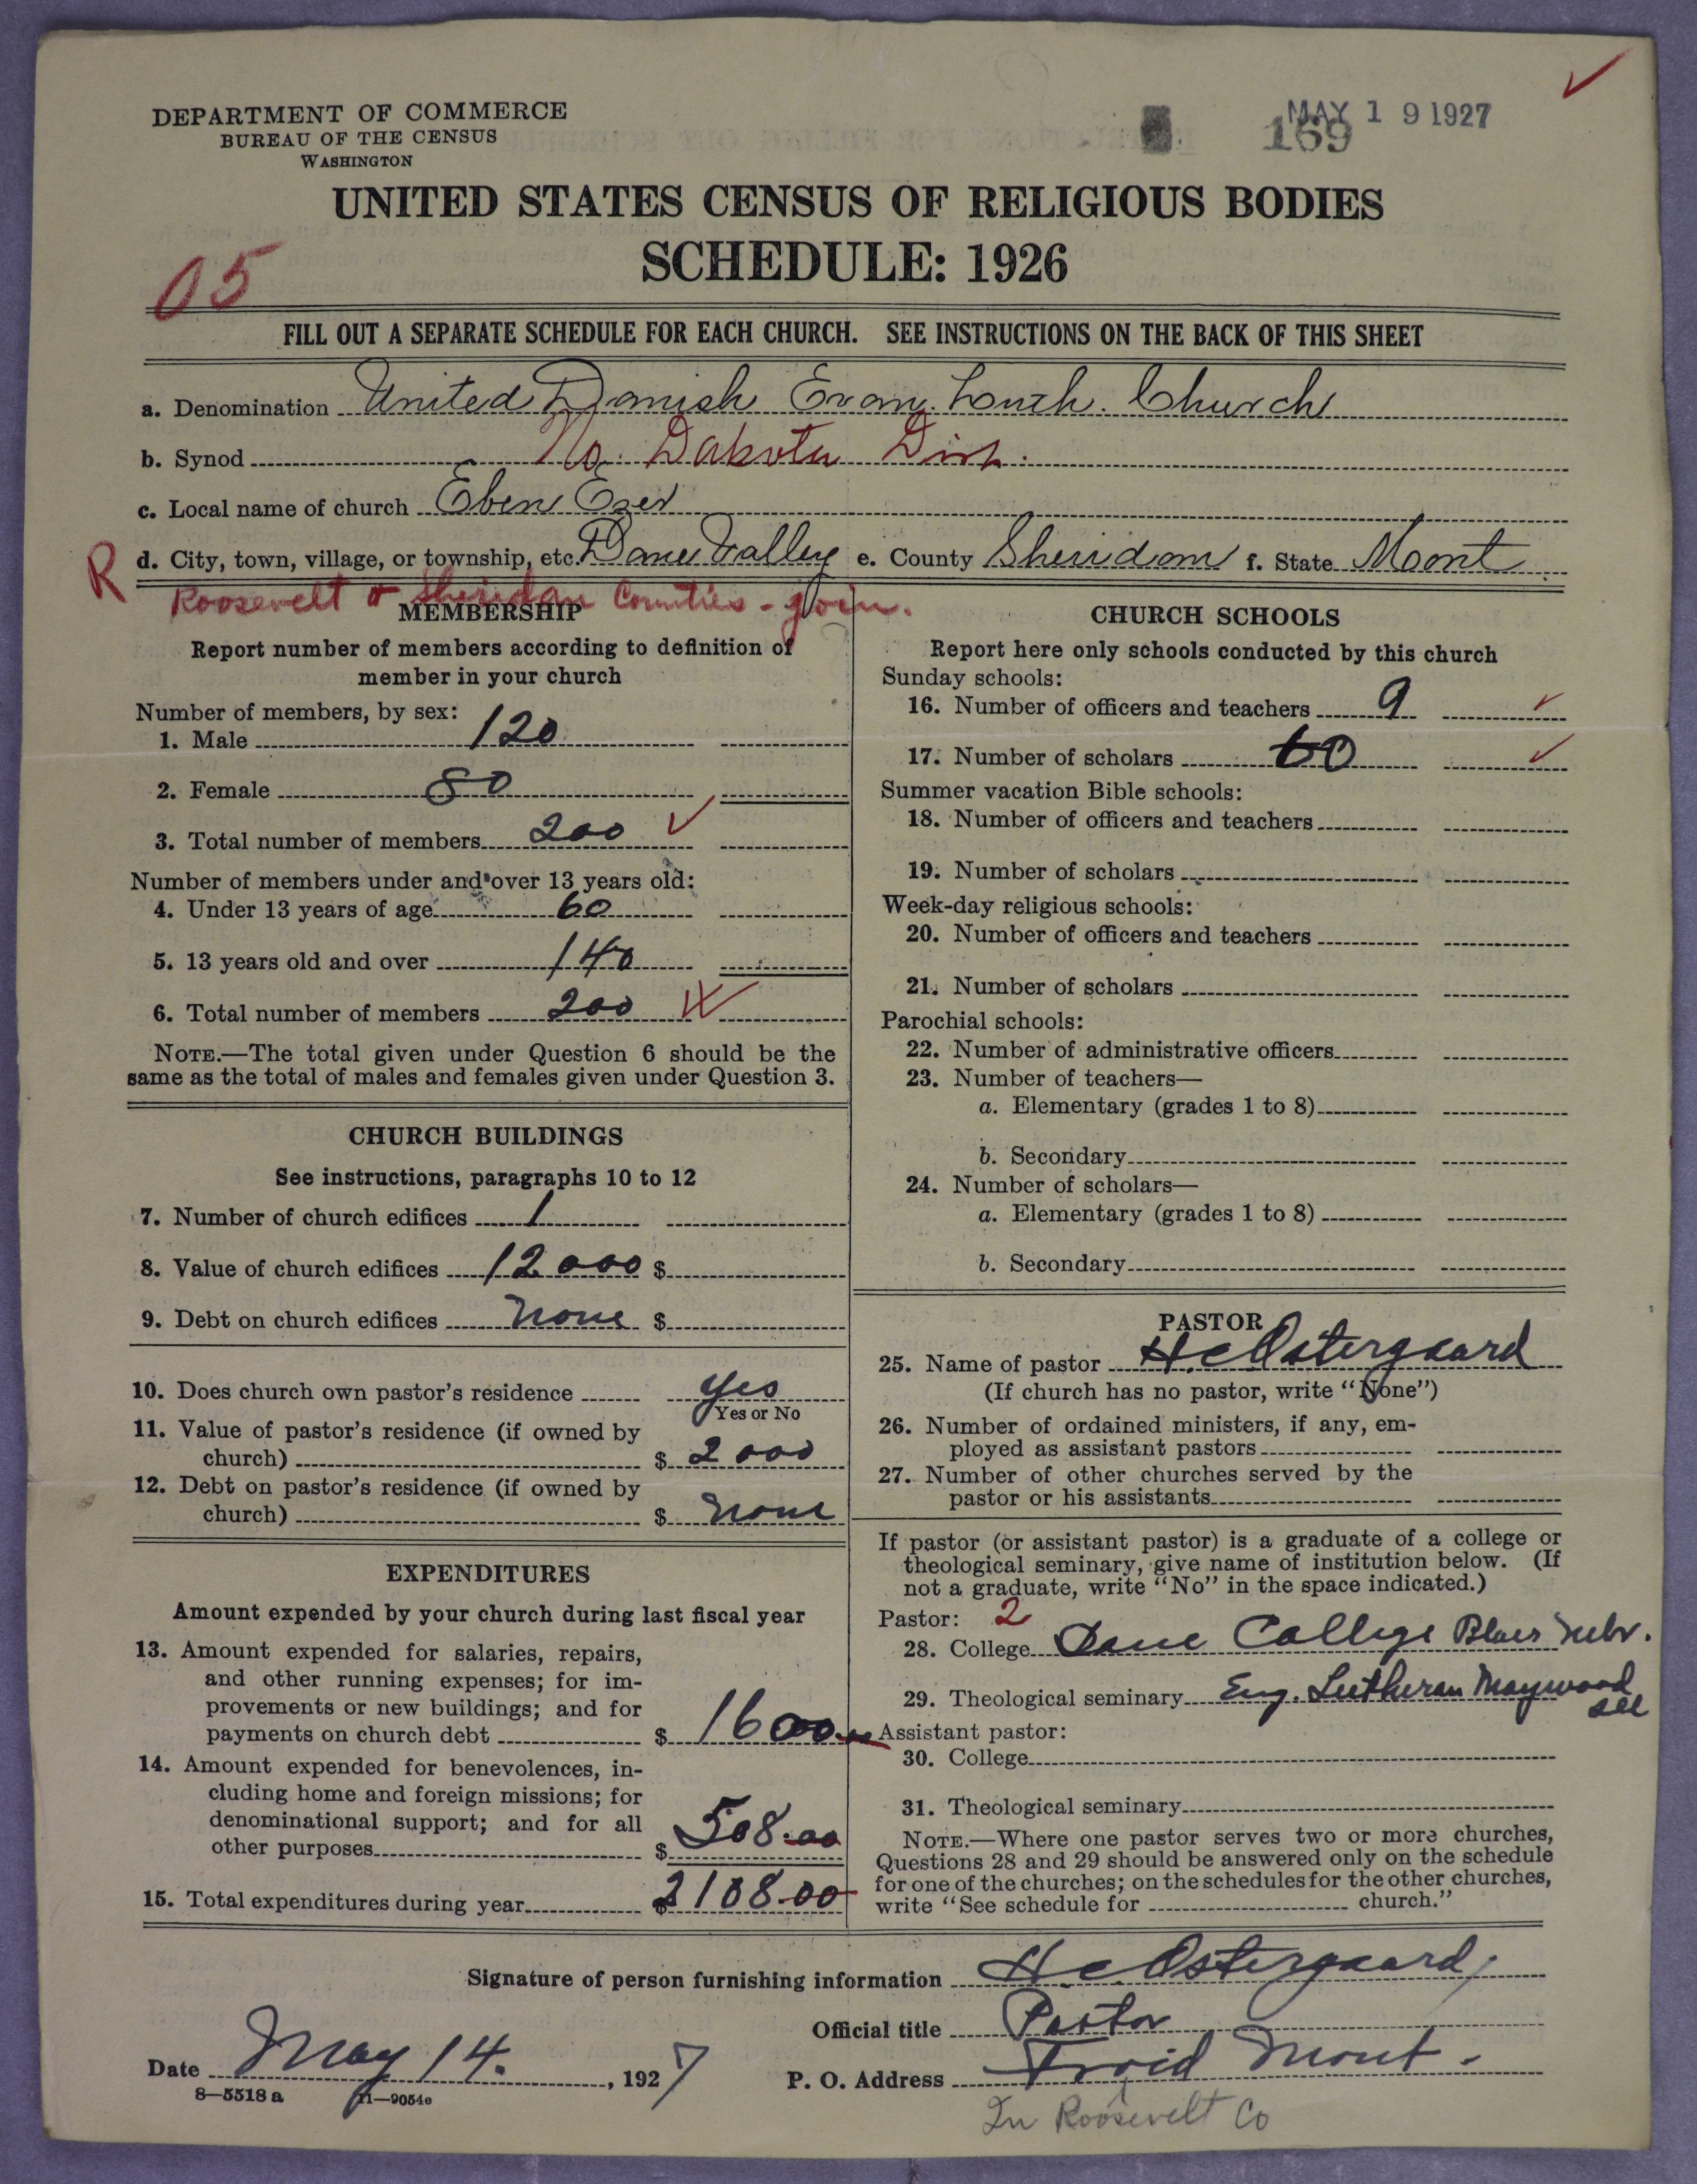 DEPARTMENT OF COMMERCE
BUREAU OF THE CENSUS
WASHINGTON
MAY 19 1927
169
UNITED STATES CENSUS OF RELIGIOUS BODIES
SCHEDULE: 1926
05
FILL OUT A SEPARATE SCHEDULE FOR EACH CHURCH. SEE INSTRUCTIONS ON THE BACK OF THIS SHEET
a. Denomination United Danish Evan. Luth. Church
b. Synod No. Dakota Dist.
c. Local name of church Eben Ezer
R d. City, town, village, or township, etc. Dane Valley e. County Sheridan f. State Mont
Roosevelt & Sheridan Counties - join.
MEMBERSHIP
Report number of members according to definition of
member in your church
Number of members, by sex:
1. Male 120
2. Female 80
3. Total number of members 200
Number of members under and over 13 years old:
4. Under 13 years of age 60
5. 13 years old and over 140
6. Total number of members 200
NOTE.—The total given under Question 6 should be the
same as the total of males and females given under Question 3.
CHURCH BUILDINGS
See instructions, paragraphs 10 to 12
7. Number of church edifices 1
8. Value of church edifices 12000 $
9. Debt on church edifices none $
10. Does church own pastor's residence yes
Yes or No
11. Value of pastor's residence (if owned by
church) $ 2000
12. Debt on pastor's residence (if owned by
church) $ none
EXPENDITURES
Amount expended by your church during last fiscal year
13. Amount expended for salaries, repairs,
and other running expenses; for im-
provements or new buildings; and for
payments on church debt $ 1600.00
14. Amount expended for benevolences, in-
cluding home and foreign missions; for
denominational support; and for all
other purposes $ 508.00
15. Total expenditures during year $ 2108.00
CHURCH SCHOOLS
Report here only schools conducted by this church
Sunday schools:
16. Number of officers and teachers 9
17. Number of scholars 60
Summer vacation Bible schools:
18. Number of officers and teachers
19. Number of scholars
Week-day religious schools:
20. Number of officers and teachers
21. Number of scholars
Parochial schools:
22. Number of administrative officers
23. Number of teachers—
a. Elementary (grades 1 to 8)
b. Secondary
24. Number of scholars—
a. Elementary (grades 1 to 8)
b. Secondary
PASTOR
25. Name of pastor H.C. Ostergaard
(If church has no pastor, write "None")
26. Number of ordained ministers, if any, em-
ployed as assistant pastors
27. Number of other churches served by the
pastor or his assistants
If pastor (or assistant pastor) is a graduate of a college or
theological seminary, give name of institution below. (If
not a graduate, write "No" in the space indicated.)
Pastor: 2
28. College Dane College Blair Nebr.
29. Theological seminary Eng. Lutheran Maywood
Ill
Assistant pastor:
30. College
31. Theological seminary
NOTE.—Where one pastor serves two or more churches,
Questions 28 and 29 should be answered only on the schedule
for one of the churches; on the schedules for the other churches,
write "See schedule for church."
Signature of person furnishing information H.C. Ostergaard
Official title Pastor
Date May 14. , 1927
P. O. Address Froid Mont.
8—5518 a 11—9054e
In Roosevelt Co